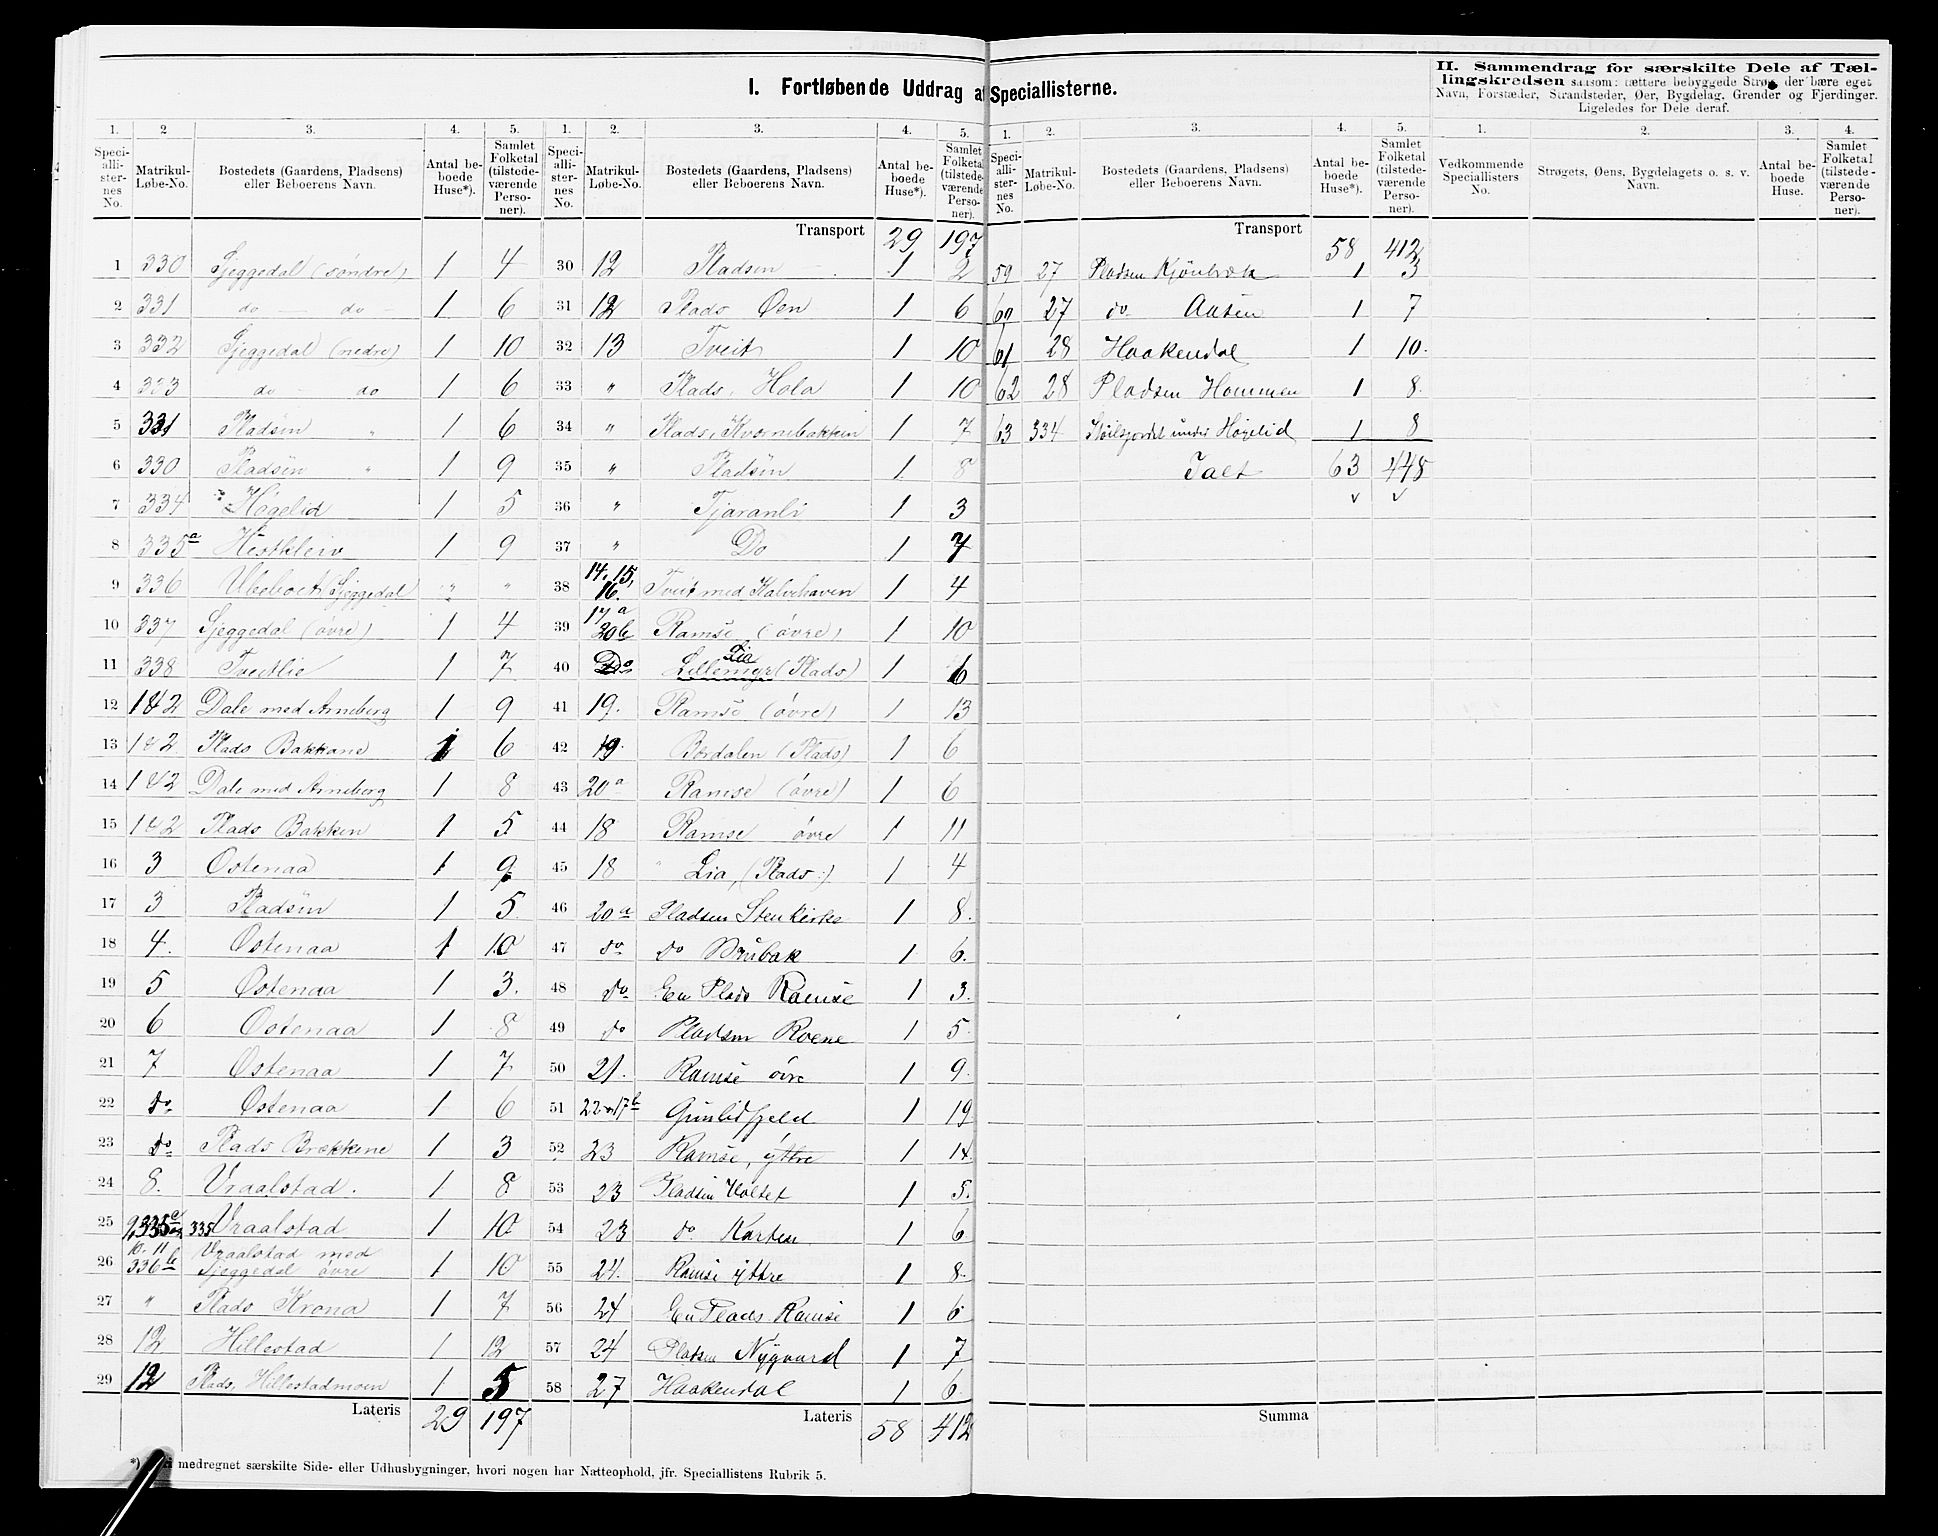 I. Fortløbende Uddrag af Speciallisterne.
II. Sammendrag for særskilte Dele af Tæl-
lingskredsen saasom: tættere bebyggede Strøg, der bære eget
Navn, Forstæder, Strandsteder, Øer, Bygdelag, Grender og Fjerdinger.
Ligeledes for Dele deraf.
1. 2 3. 4. 5. 1. 2. 3. 4. 5. 1. 2. 3. 4. 5. 1. 2. 3. 4.
Speciallisternes No. Matrikul-Løbe-No. Bostedets (Gaardens, Pladsens) eller Beboerens Navn. Antal beboede Huse*). Samlet Folketal (tilstedeværende Personer).
Speciallisternes No. Matrikul-Løbe-No. Bostedets (Gaardens, Pladsens) eller Beboerens Navn. Antal beboede Huse*). Samlet Folketal (tilstedeværende Personer).
Speciallisternes No. Matrikul-Løbe-No. Bostedets (Gaardens, Pladsens) eller Beboerens Navn. Antal beboede Huse*). Samlet Folketal (tilstedeværende Personer).
Vedkommende Speciallisters No. Strøgets, Øens, Bygdelagets o. s. v. Navn. Antal beboede Huse. Samlet Folketal (tilstedeværende Personer).
1 330 Sjeggedal (søndre) 1 4
2 331 do — do 1 6
3 332 Sjeggedal (nedre) 1 10
4 333 do — do 1 6
5 331 Pladsen " 1 6
6 330 Pladsen " 1 9
7 334 Høgelid 1 5
8 335a Hestkleiv 1 9
9 336 Ubeboet Sjeggedal " "
10 337 Sjeggedal (øvre) 1 4
11 338 Tveitlie 1 7
12 1&2 Dale med Arneberg 1 9
13 1&2 Plads Bakkane 1 6
14 1&2 Dale med Arneberg 1 8
15 1&2 Plads Bakken 1 5
16 3 Ostenaa 1 9
17 3 Pladsen 1 5
18 4. Ostenaa 1 10
19 5 Østenaa 1 3.
20 6 Ostenaa 1 8
21 7 Østenaa 1 7
22 do Østenaa 1 6
23 do Plads Brekkene 1 3
24 8. Vraalstad. 1 8
25 9, 335 335 Vraalstad 1 10
26 10. 11 336b Vraalstad med Sjeggedal øvre 1 10
27 " Plads Krona 1 7
28 12 Hillestad 1 12
29 12 Plads, Hillestadmoen 1 5
Lateris 29 197
Transport 29 197
30 12 Pladsen 1 2
31 12 Plads Øen 1 6
32 13 Tveit 1 10
33 " Plads, Hola 1 10
34 " Plads, Kvernebakken 1 7
35 " Pladsen 1 8
36 " Tjaranli 1 3
37 " Do 1 7
38 14. 15, 16. Tveit med Kalvehaven 1 4
39 17a 20b Ramse (øvre) 1 10
40 Do Lia Lillemyr (Plads) 1 6
41 19. Ramse (øvre) 1 13
42 19. Bordalen (Plads) 1 6
43 20a Ramse (øvre) 1 6
44 18 Ramse øvre 1 11
45 18 " Lia, (Plads.) 1 4
46 20a Pladsen Stenkirke 1 8.
47 do do Brubak 1 6.
48 do En Plads Ramse 1 3.
49 do Pladsen Roene 1 5.
50 21. Ramse øvre 1 9.
51 22 17b Gunlidfjeld 1 19
52 23 Ramse, ÿttre 1 14.
53 23 Pladsen Holtet 1 5.
54 23 do 1 6
55 24. Ramse ÿttre 1 8.
56 24 En Plads Ramse 1 6
57 24 Pladsen Nÿgaard 1 7
58 27 Haakendal 1 6.
Lateris 58 412
Transport 58 412
59 27 Pladsen 1 3
60 27 do Aasen 1 7
61 28 Haakendal 1 10.
62 28 Pladsen Hommen 1 8.
63 334 under Høgelid 1 8
Ialt 63 448
Summa
*) medregnet særskilte Side- eller Udhusbygninger, hvori nogen har Natteophold, jfr. Speciallistens Rubrik 5.